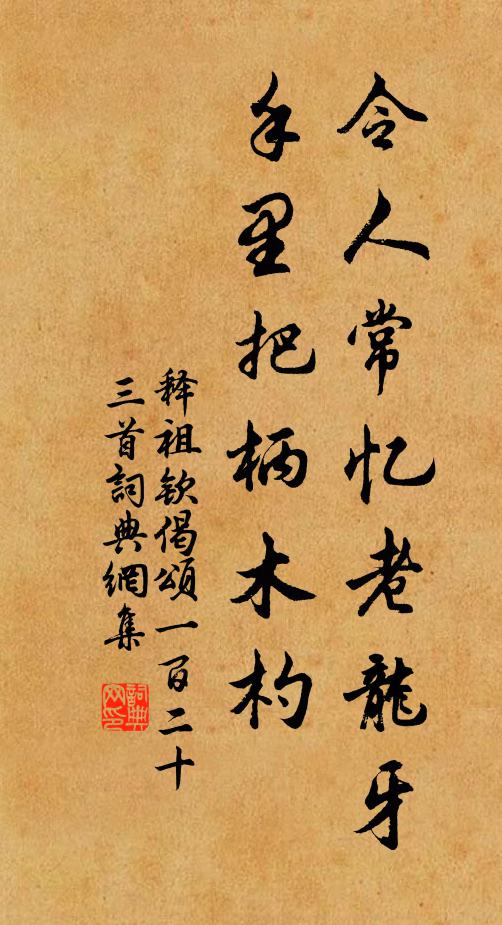 令人常忆老龍牙
手里把柄木杓
释祖钦偈頌一百二十
三首詞典網集
詞典网印